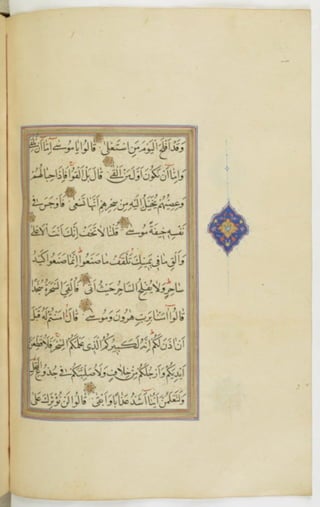 وَقَدْ أَفْلَحَ الْيَوْمَ مَنِ اسْتَعْلَىٰ قَالُوا يَا مُوسَىٰ إِمَّا أَنْ تُلْقِيَ
وَإِمَّا أَنْ نَكُونَ أَوَّلَ مَنْ أَلْقَىٰ قَالَ بَلْ أَلْقُوا فَإِذَا حِبَالُهُمْ
وَعِصِيُّهُمْ يُخَيَّلُ إِلَيْهِ مِنْ سِحْرِهِمْ أَنَّهَا تَسْعَىٰ فَأَوْجَسَ فِي
نَفْسِهِ خِيفَةً مُوسَىٰ قُلْنَا لَا تَخَفْ إِنَّكَ أَنْتَ الْأَعْلَىٰ
وَأَلْقِ مَا فِي يَمِينِكَ تَلْقَفْ مَا صَنَعُوا إِنَّمَا صَنَعُوا كَيْدُ
سَاحِرٍ وَلَا يُفْلِحُ السَّاحِرُ حَيْثُ أَتَىٰ فَأُلْقِيَ السَّحَرَةُ سُجَّدًا
قَالُوا آمَنَّا بِرَبِّ هَارُونَ وَمُوسَىٰ قَالَ آمَنْتُمْ لَهُ قَبْلَ
أَنْ آذَنَ لَكُمْ إِنَّهُ لَكَبِيرُكُمُ الَّذِي عَلَّمَكُمُ السِّحْرَ فَلَأُقَطِّعَنَّ
أَيْدِيَكُمْ وَأَرْجُلَكُمْ مِنْ خِلَافٍ وَلَأُصَلِّبَنَّكُمْ فِي جُذُوعِ النَّخْلِ
وَلَتَعْلَمُنَّ أَيُّنَا أَشَدُّ عَذَابًا وَأَبْقَىٰ قَالُوا لَنْ نُؤْثِرَكَ عَلَىٰ